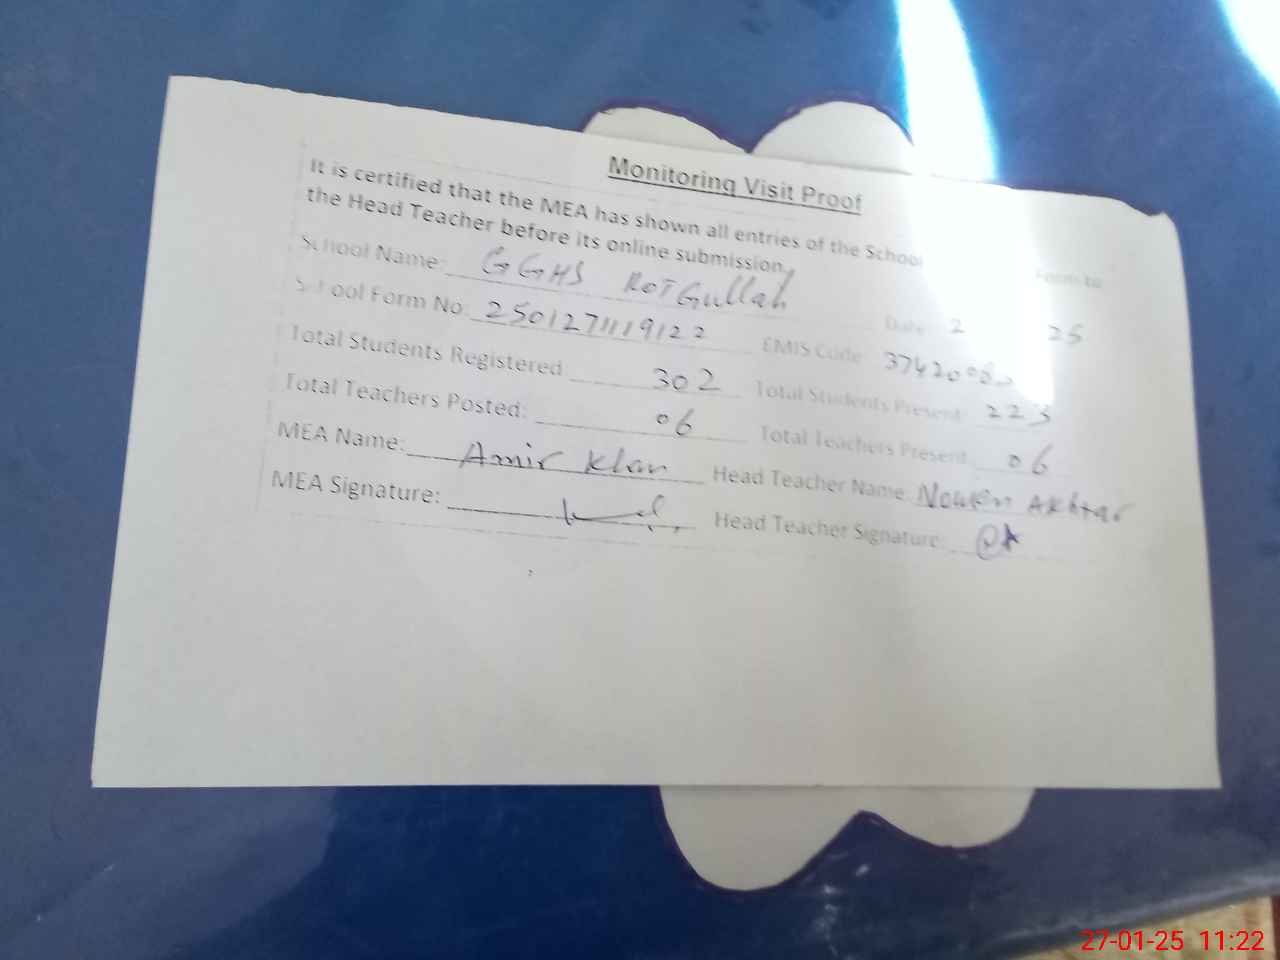 Monitoring Visit Proof
It is certified that the MEA has shown all entries of the School Form to
the Head Teacher before its online submission.
School Name: GGHS KOT Gullah Date: 2 25
School Form No: 2501271119122 EMIS Code
Total Students Registered 302 Total Students Present: 223
Total Teachers Posted: 06 Total Teachers Present: 06
MEA Name: Amir Khan Head Teacher Name: Akhtar
MEA Signature: Head Teacher Signature:
27-01-25 11:22